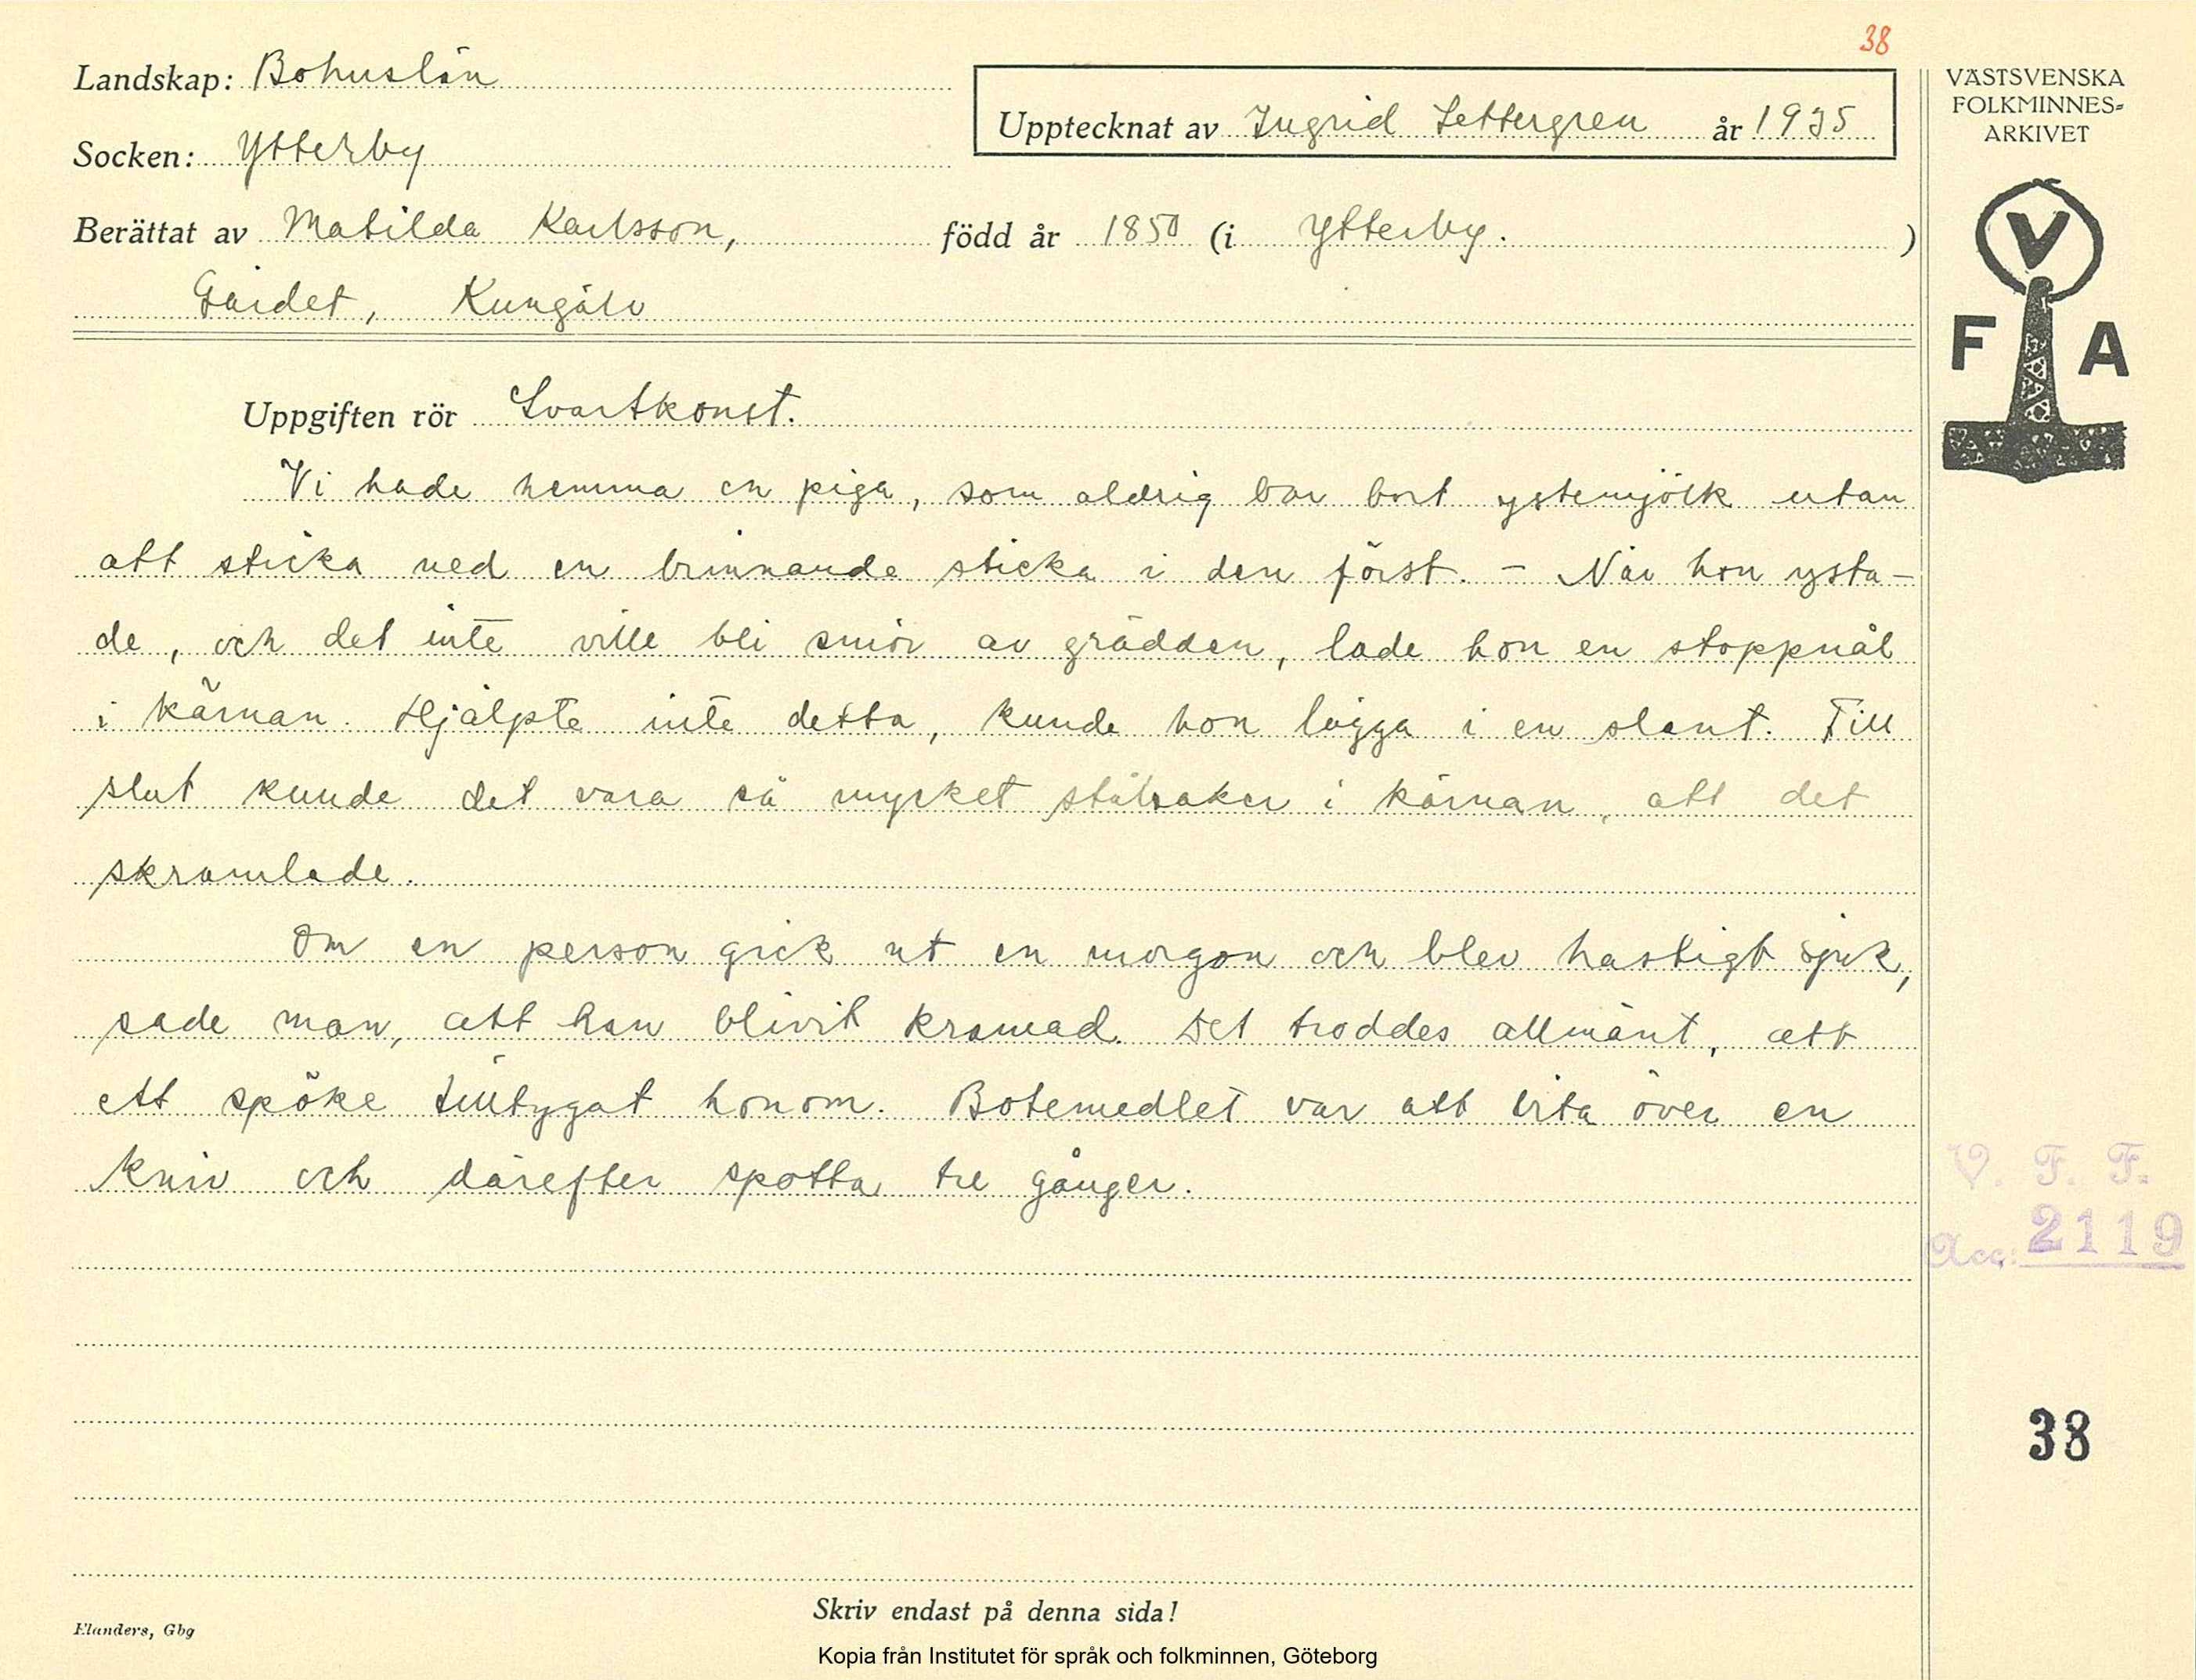 38
Landskap: Bohuslän
Upptecknat av Ingrid Settergren år 1935
Socken: Ytterby
Berättat av Matilda Karlsson, född år 1850 (i Ytterby. )
Gärdet, Kungälv
VÄSTSVENSKA
FOLKMINNES-
ARKIVET
V
F A
Uppgiften rör Svartkonst.
Vi hade hemma en piga, som aldrig bar bort ystemjölk utan
att sticka ned en brinnande sticka i den först. - När hon ysta-
de, och det inte ville bli smör av grädden, lade hon en stoppnål
i kärnan. Hjälpte inte detta, kunde hon lägga i en slant. Till
slut kunde det vara så mycket stålsaker i kärnan, att det
skramlade.
Om en person gick ut en morgon och blev hastigt sjuk,
sade man, att han blivit kramad. Det troddes allmänt, att
ett spöke tilltygat honom. Botemedlet var att bita över en
kniv och därefter spotta tre gånger.
V. F. F.
Acc: 2119
38
Skriv endast på denna sida!
Elanders, Gbg
Kopia från Institutet för språk och folkminnen, Göteborg